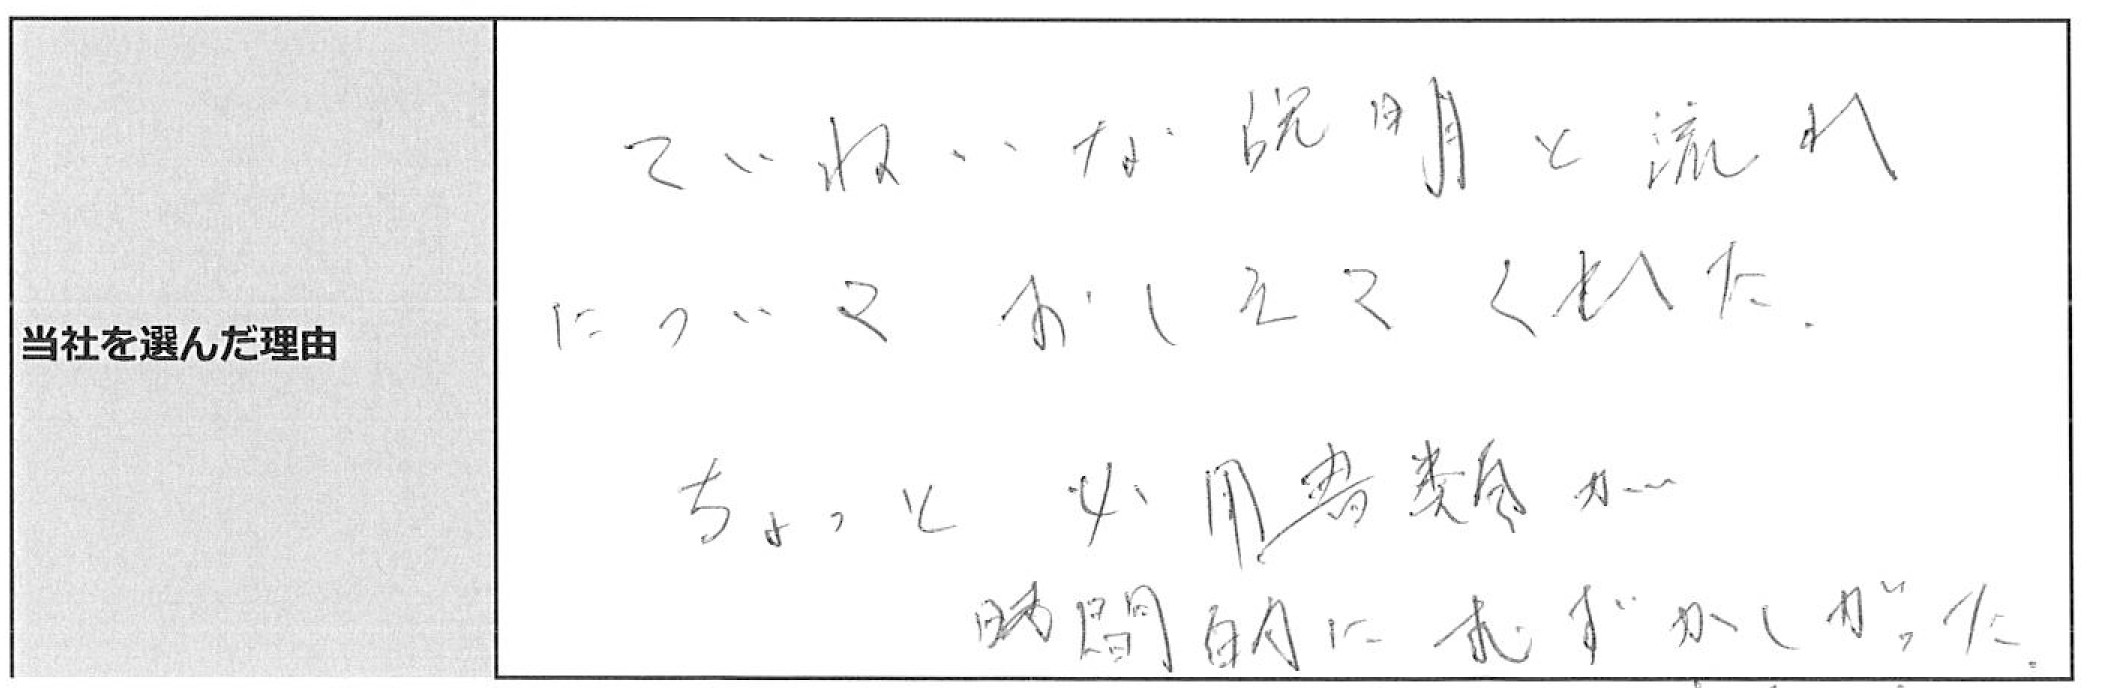 当社を選んだ理由
ていねいな説明と流れ
について おしえてくれた.
ちょっと 必用書類が
時間的に むずかしがった.